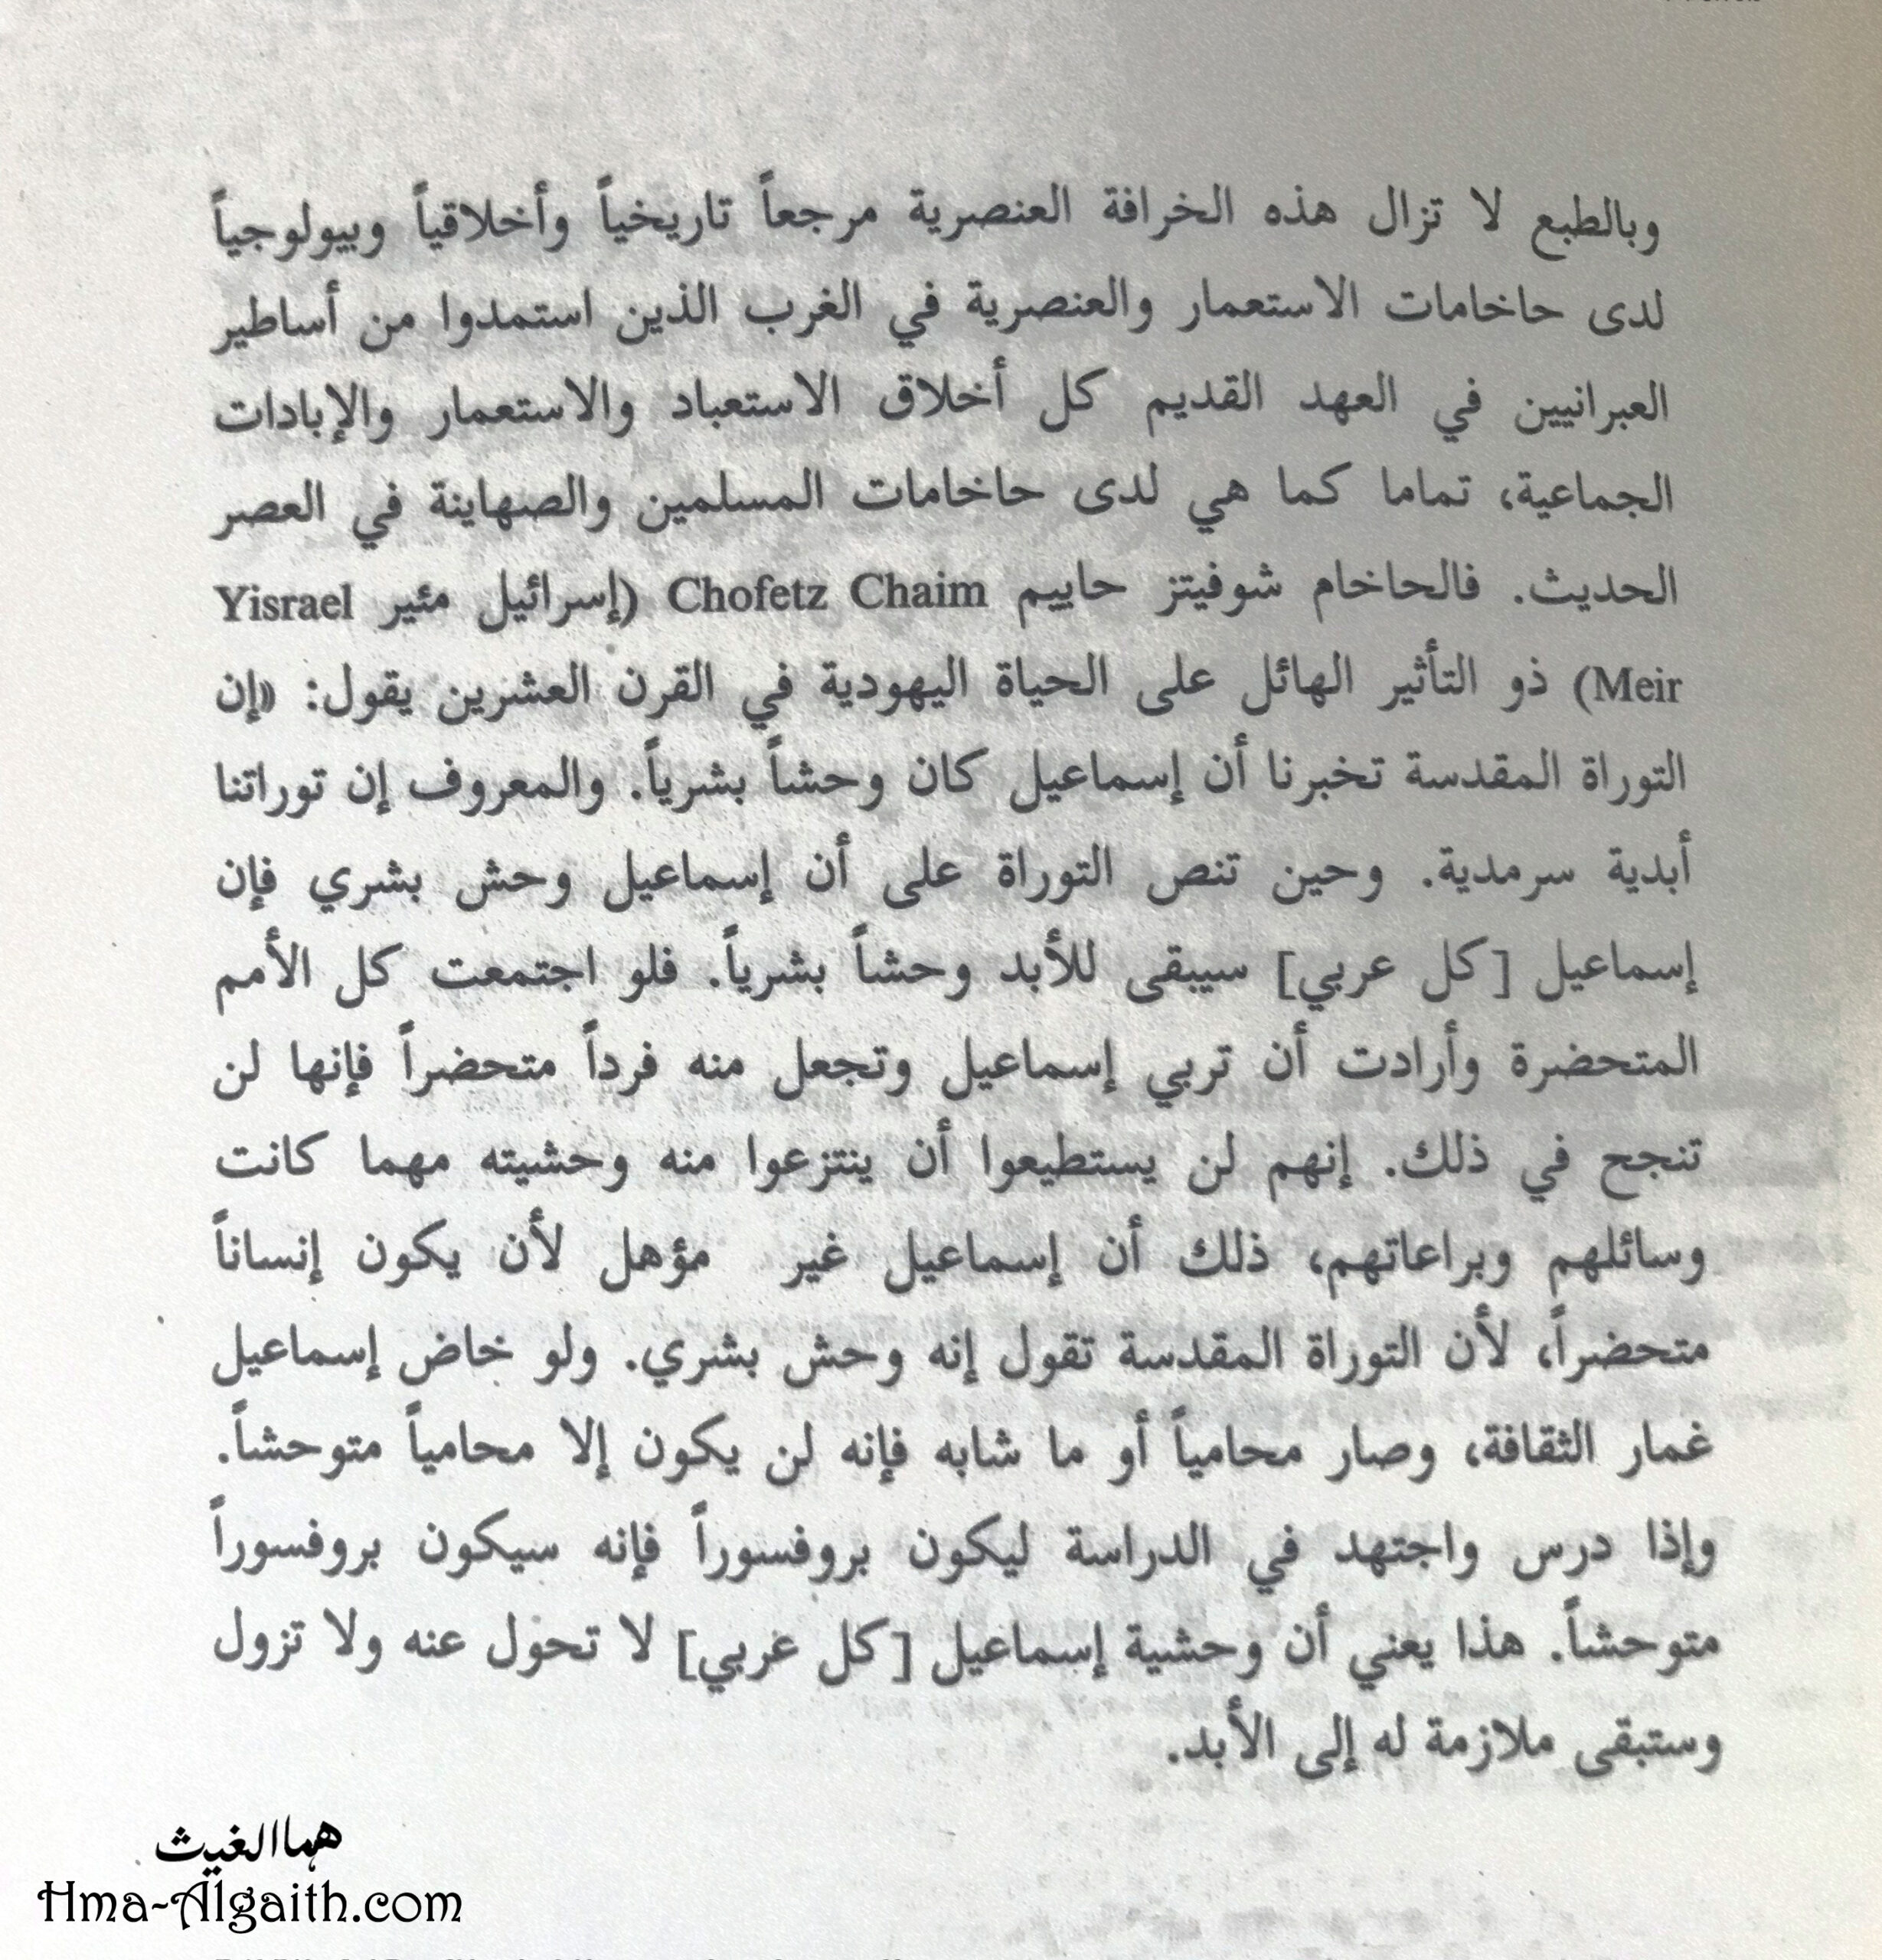 وبالطبع لا تزال هذه الخرافة العنصرية مرجعاً تاريخياً وأخلاقياً وبيولوجياً
لدى حاخامات الاستعمار والعنصرية في الغرب الذين استمدوا من أساطير
العبرانيين في العهد القديم كل أخلاق الاستعباد والاستعمار والإبادات
الجماعية، تماما كما هي لدى حاخامات المسلمين والصهاينة في العصر
الحديث. فالحاخام شوفيتز حاييم Chofetz Chaim (إسرائيل مئير Yisrael
Meir) ذو التأثير الهائل على الحياة اليهودية في القرن العشرين يقول: «إن
التوراة المقدسة تخبرنا أن إسماعيل كان وحشاً بشرياً. والمعروف إن توراتنا
أبدية سرمدية. وحين تنص التوراة على أن إسماعيل وحش بشري فإن
إسماعيل [كل عربي] سيبقى للأبد وحشاً بشرياً. فلو اجتمعت كل الأمم
المتحضرة وأرادت أن تربي إسماعيل وتجعل منه فرداً متحضراً فإنها لن
تنجح في ذلك. إنهم لن يستطيعوا أن ينتزعوا منه وحشيته مهما كانت
وسائلهم وبراعاتهم، ذلك أن إسماعيل غير مؤهل لأن يكون إنساناً
متحضراً، لأن التوراة المقدسة تقول إنه وحش بشري. ولو خاض إسماعيل
غمار الثقافة، وصار محامياً أو ما شابه فإنه لن يكون إلا محامياً متوحشاً.
وإذا درس واجتهد في الدراسة ليكون بروفسوراً فإنه سيكون بروفسوراً
متوحشاً. هذا يعني أن وحشية إسماعيل [كل عربي] لا تحول عنه ولا تزول
وستبقى ملازمة له إلى الأبد.
هما الغيث
Hma-Algaith.com